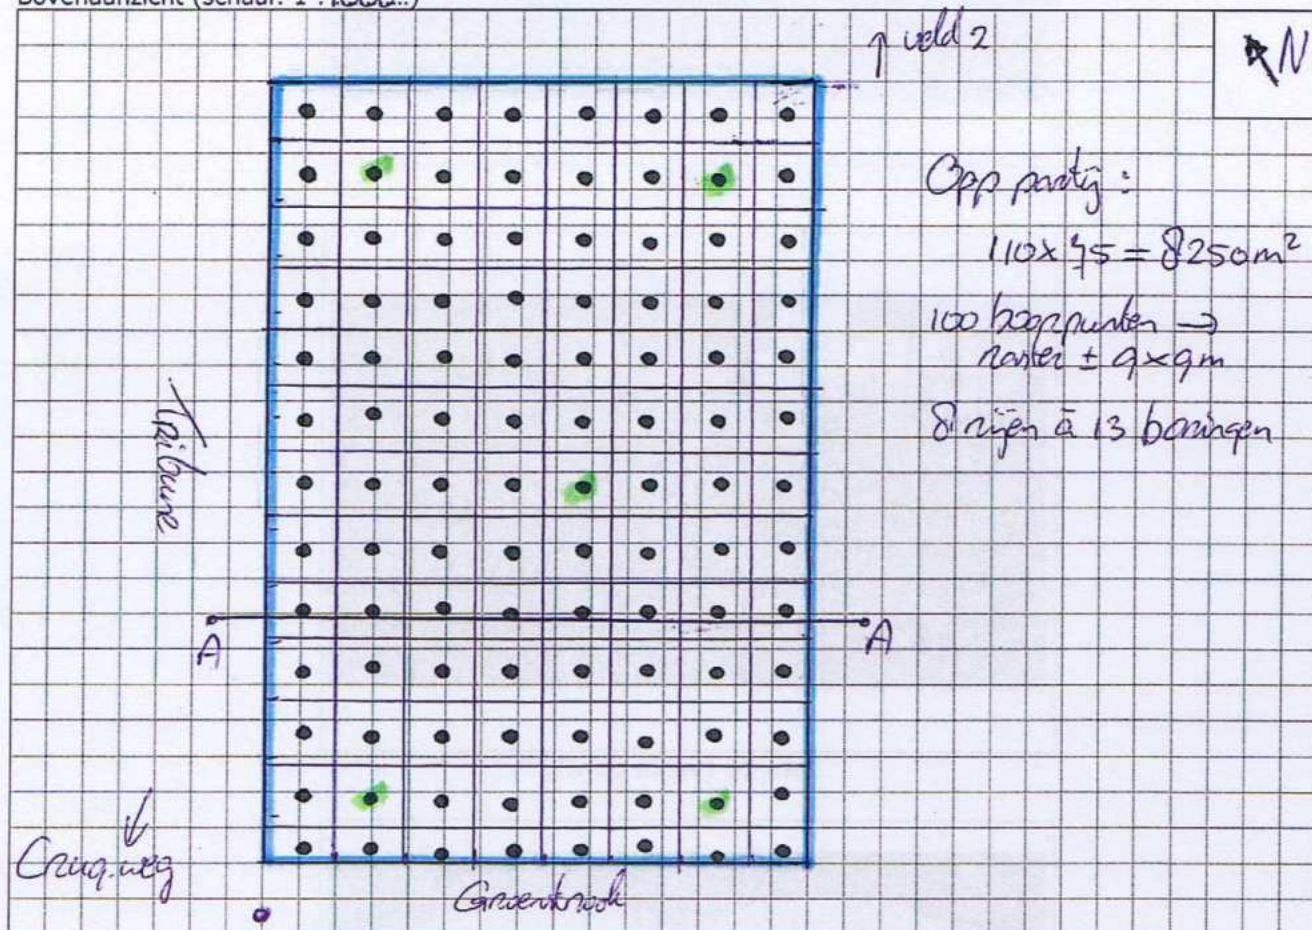 Bovenaanzicht (schaal: 1 : 1000..)
↑ veld 2
N
Opp partij :
110 x 75 = 8250 m²
100 boorpunten →
raster ± 9 x 9 m
8 rijen à 13 boringen
Tribune
A
A
Cruq.weg
Groenstrook